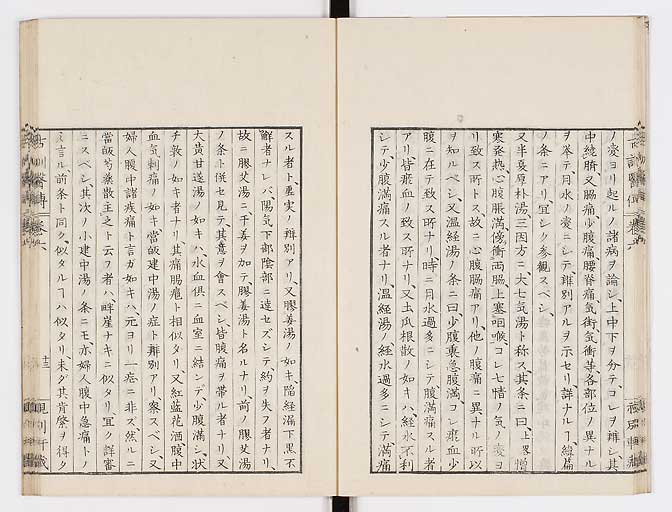 ノ変ヨリ起ルノ諸病ヲ論シ上中下ヲ分テコレヲ辨シ其
中繞臍又脇痛少腹痛腰脊痛気街気衝等各部位ノ異ナル
ヲ挙テ月水ノ変ニシテ辨別アルヲ示セリ詳ナルヿ 篇
ノ条ニアリ宜シク参観スベシ
又半夏厚朴湯三因方ニ大七気湯ト称ス其条ニ曰上
寒発熱心腹脹満傍衝両脇上塞咽喉コレ七情ノ気ノ変ヨ
リ致ス所トス故ニ心腹脇痛アリ他ノ腹痛ニ異ナル所以
ヲ知ルベシ又温経湯ノ条ニ曰少腹裏急腹満コレ瘀血少
腹ニ在テ致ス所ナリ時ニ月水過多ニシテ腹満痛スル者
アリ皆瘀血ノ致ス所ナリ又土瓜根散ノ如キハ経水不利
シテ少腹満痛スル者ナリ温経湯ノ経水過多ニシテ満痛
スル者ト虚実ノ辨別アリ又膠姜湯ノ如キ陥経漏下黒不
解者ナレバ陽気下部陰部ニ達セズシテ約ヲ失フ者ナリ
故ニ膠艾湯ニ干姜ヲ加テ膠姜湯ト名ルナリ前ノ膠艾湯
ノ条ト併セ見テ其意ヲ會スベシ皆腹痛ヲ帯ル者ナリ又
大黄甘遂湯ノ如キハ水血倶ニ血室ニ結ンデ少腹満シ状
チ敦ノ如キ者ナリ其痛腸疝ト相似タリ又紅藍花酒腹中
血気刺痛ノ如キ當皈建中湯ノ症ト辨別アリ察スベシ又
婦人腹中諸疾痛ト言ガ如キハ元ヨリ一症ニ非ズ然ルニ
當皈芍薬散主之ト云フ者ハ畔崖ナキニ似タリ宜ク詳審
ニスベシ其次ノ小建中湯ノ条ニモ亦婦人腹中急痛トノ
言ル前条ト同ク似タルヿハ似タリ未ダ其肯綮ヲ得ク